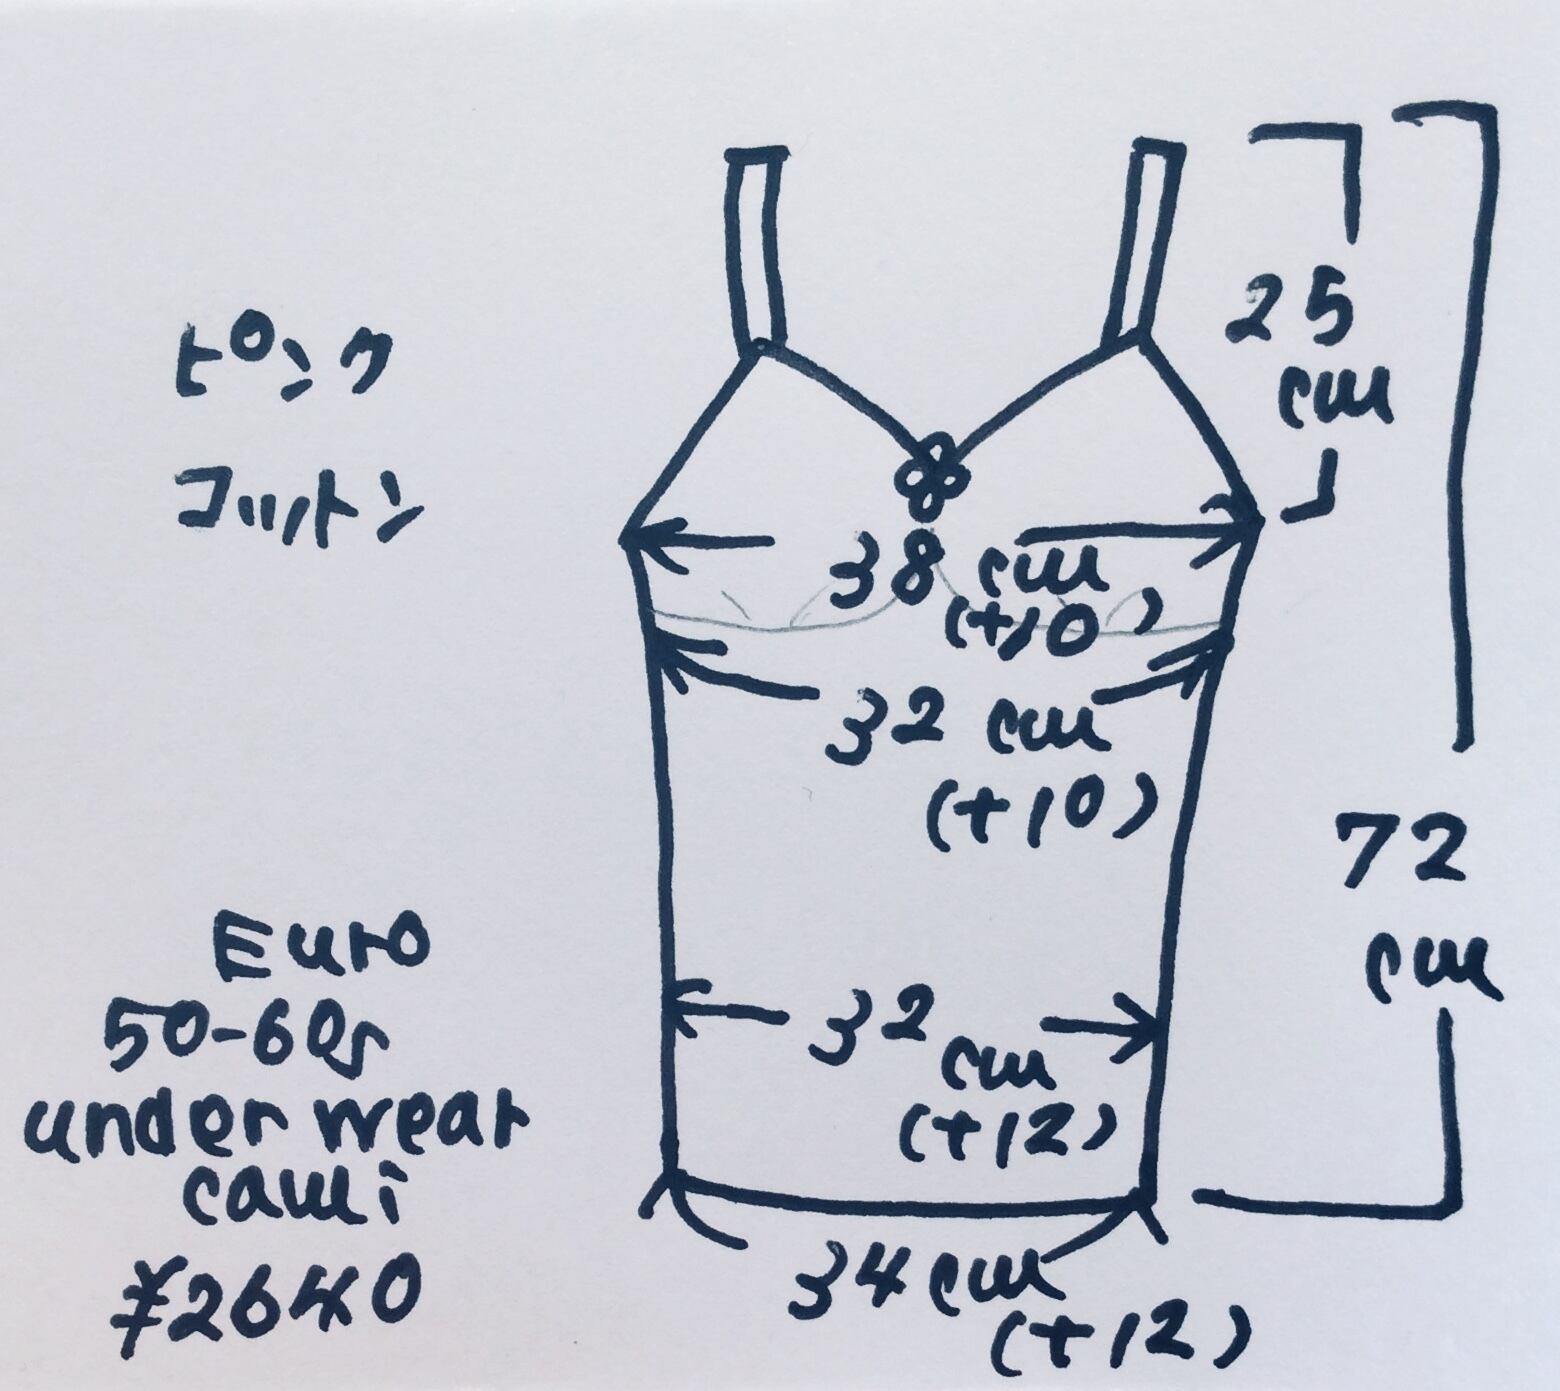 ピンク
コットン
25
cm
38 cm
(+10)
32 cm
(+10)
72
cm
32
cm
(+12)
34cm
(+12)
Euro
50-60s
under wear
cami
¥2640